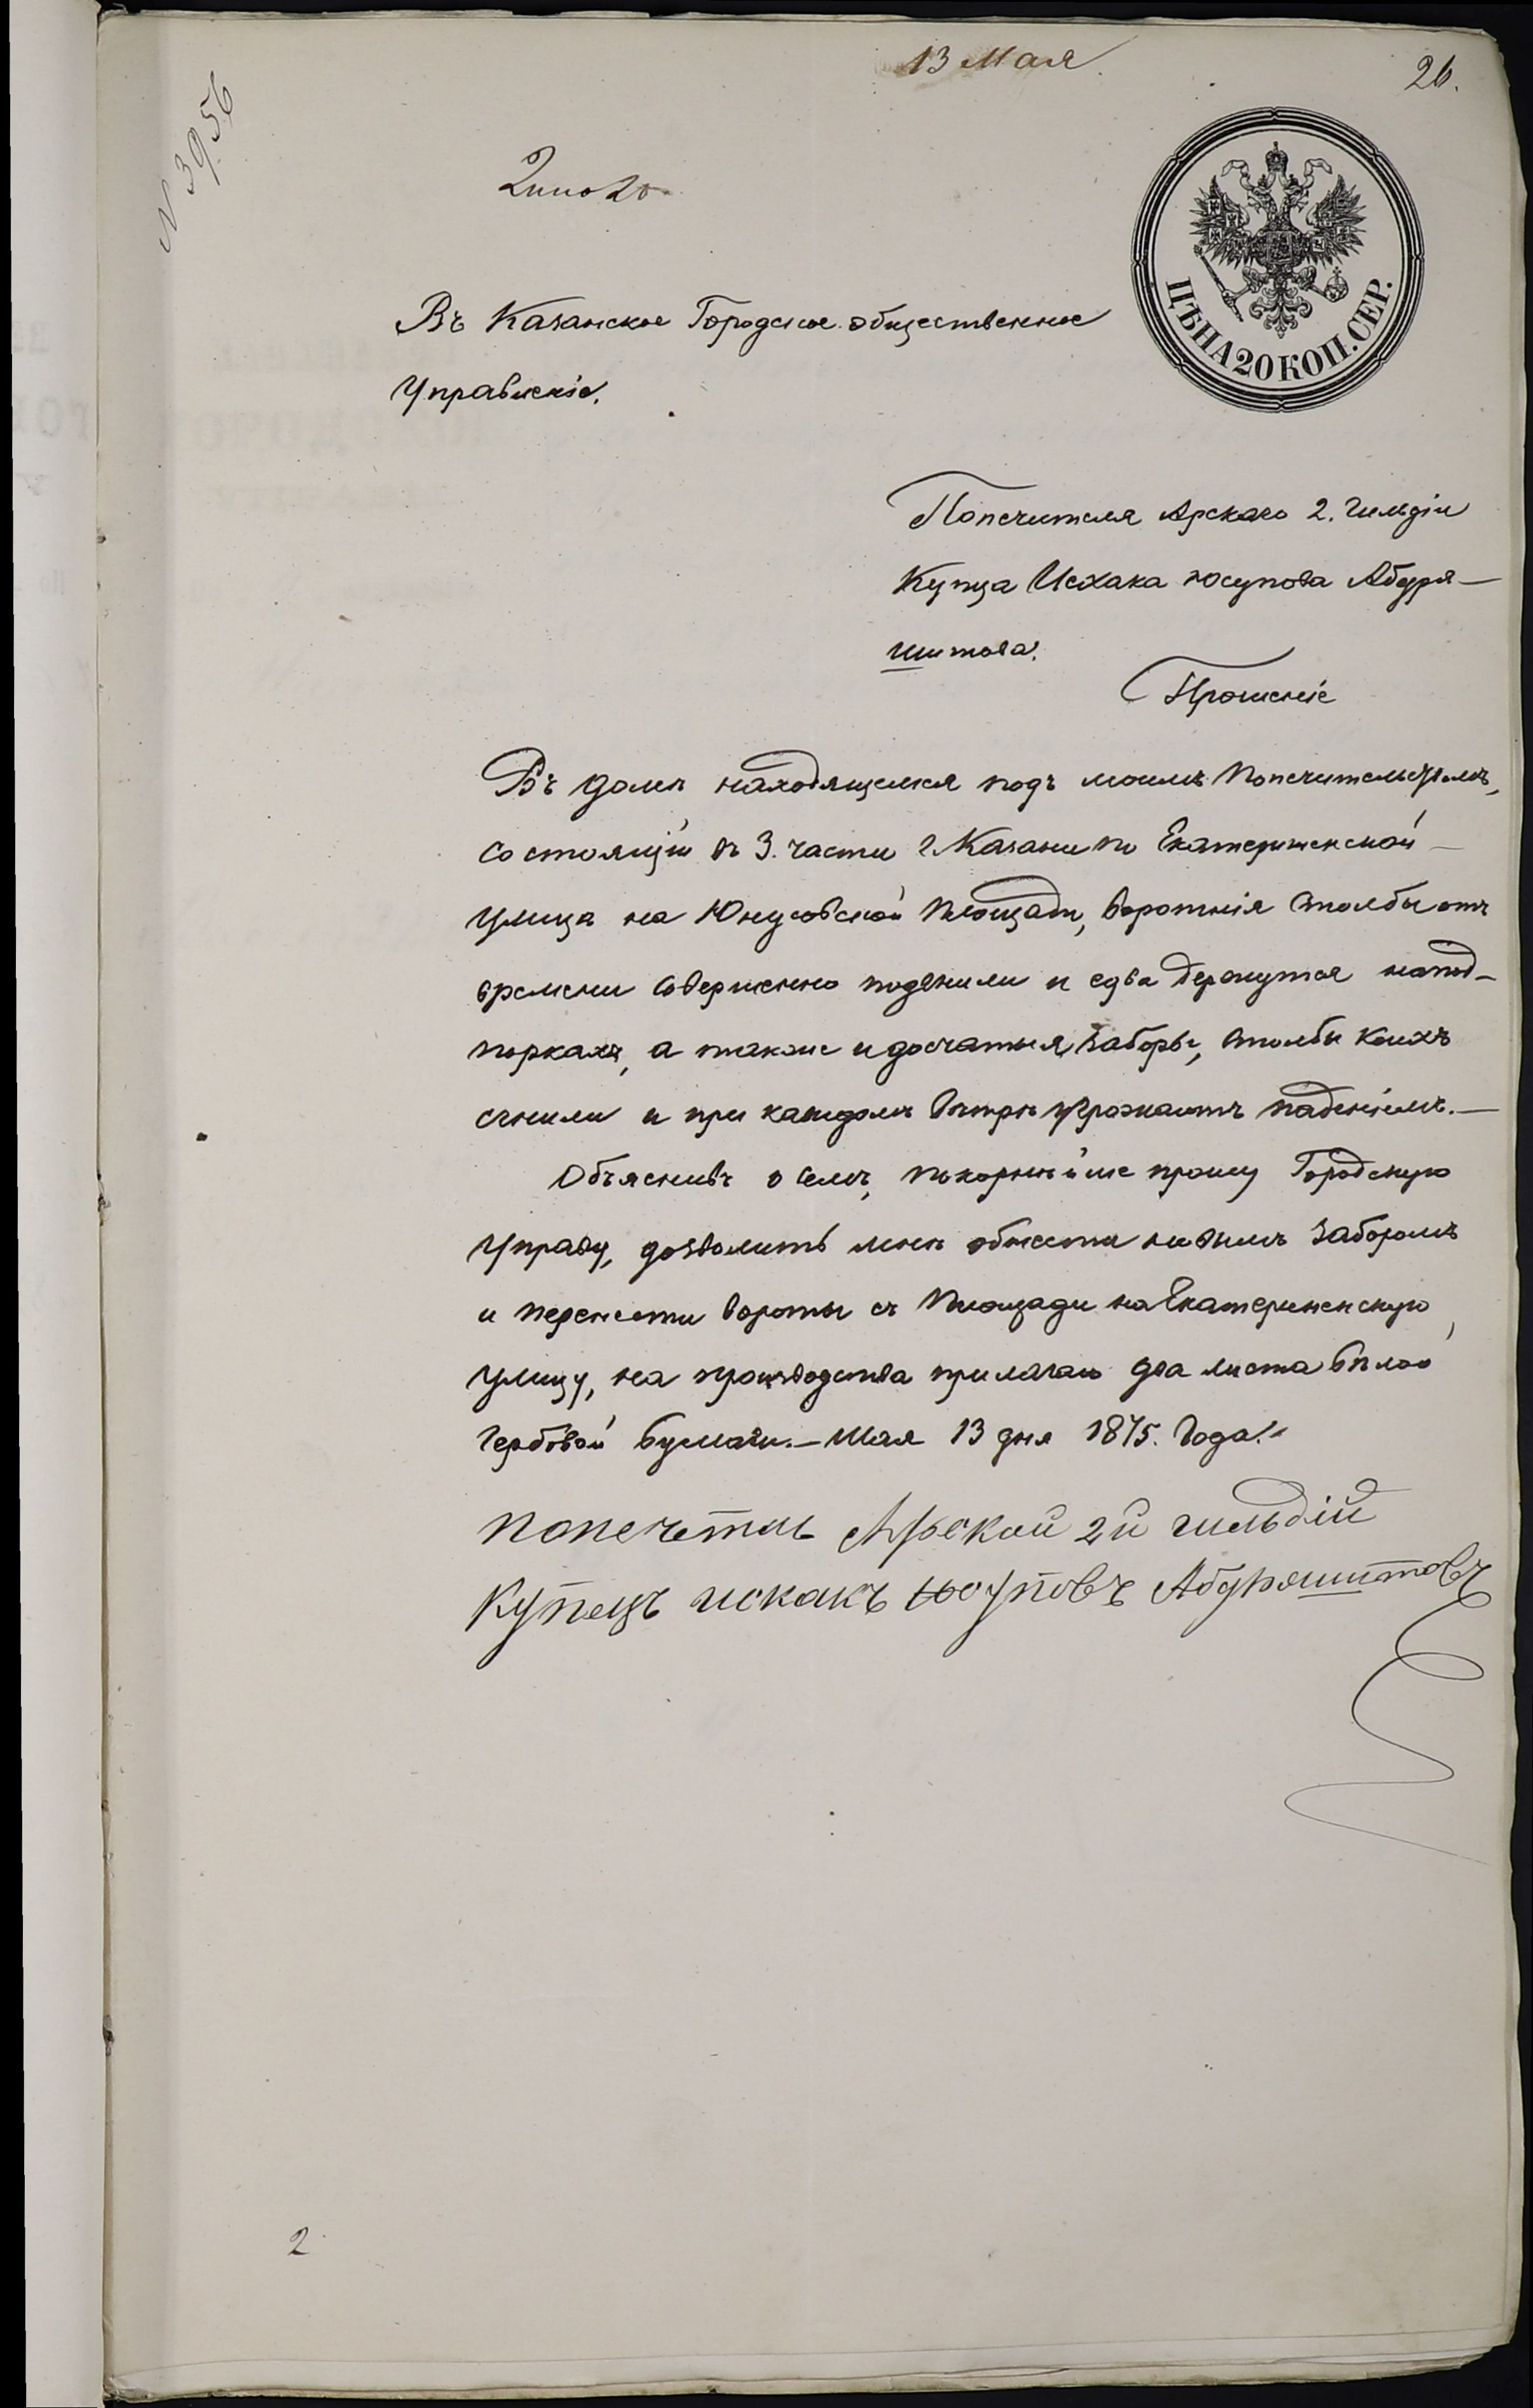 13 Мая.
26.
N 3956
2 по 20
ЦѢНА 20 КОП. СЕР.
Въ Казанское Городское общественное
Управленіе.
Попечителя Арскаго 2. гильдіи
Купца Исхака Юсупова Абдря–
шитова.
Прошеніе
Въ домѣ находящемся подъ моимъ Попечительствомъ,
состоящій въ 3. части г. Казани по Екатерининской
улицѣ на Юнусовской Площади, воротнія столбы отъ
времени совершенно подгнили и едва держутся на под–
поркахъ, а также и досчатыя заборы, столбы коихъ
сгнили и при каждомъ вѣтрѣ угрожаютъ паденіемъ.–
Объяснивъ о семъ, покорнѣйше прошу Городскую
Управу, дозволить мнѣ обнести новымъ заборомъ
и перенести вороты съ Площади на Екатерининскую
улицу, на производства прилагаю два листа бѣлой
гербовой бумаги.– Мая 13 дня 1875. Года.
попечетль Арской 2й гильдій
Купецъ искакъ Юсуповъ Абдряшитовъ
2